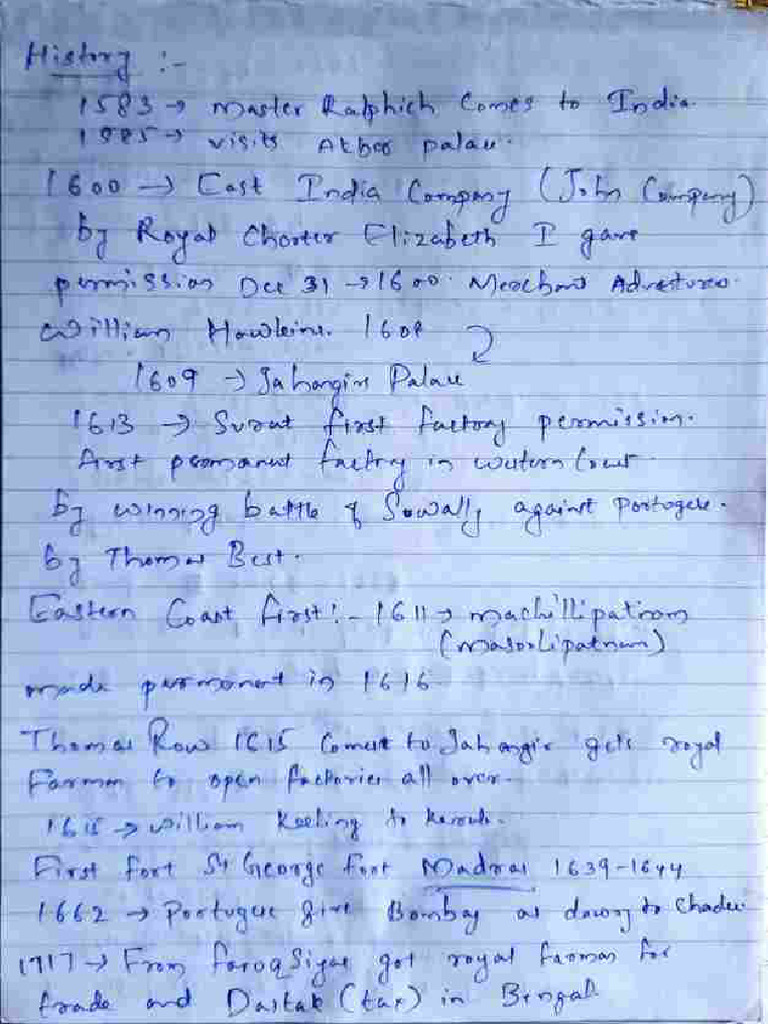 History :-
1583 → Master Ralphich Comes to India.
1585 → visits Akbar palace.
1600 → East India Company (John Company)
by Royal Charter Elizabeth I gave
permission Dec 31 → 1600. Merchant Adventures.
William Hawkins. 1608
1609 → Jahangir Palace
1613 → Surat first factory permission.
first permanent factry in western Coast
by winning battle of Sowally against Portogese.
by Thomas Best.
Eastern Coast first :- 1611 → machillipatnam
(Masoolipatnam)
made permanent in 1616.
Thomas Row 1615 Comest to Jahangir gets royal
Farman to open factories all over.
William Keeling to kerala.
First fort St George fort Madras 1639-1644
1662 → Portugese give Bombay as dowry to
1717 → From faruqSiyar got royal farman for
trade and Dastak (tax) in Bengal